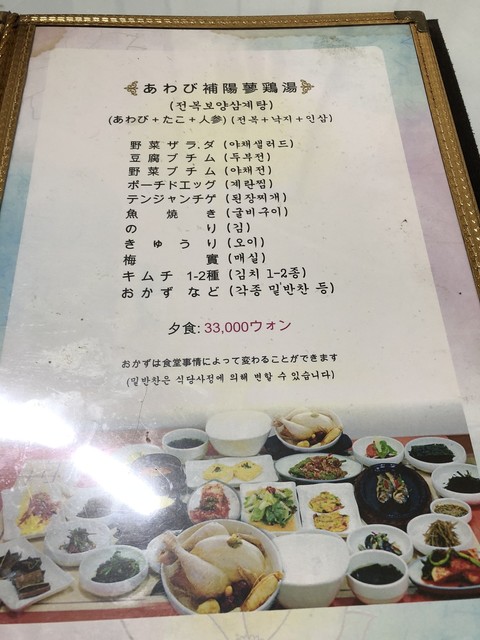 あわび補陽蔘鶏湯
(전복보양삼계탕)
(あわび+たこ+人参) (전복+낙지+인삼)
野菜ザラ.ダ (야채샐러드)
豆腐ブチム (두부전)
野菜ブチム (야채전)
ポーチドエッグ (계란찜)
テンジャンチゲ (된장찌개)
魚焼き (굴비구이)
のり (김)
きゅうり (오이)
梅實 (매실)
キムチ 1-2種 (김치 1-2종)
おかずなど (각종 밑반찬 등)
夕食: 33,000ウォン
おかずは食堂事情によって変わることができます
(밑반찬은 식당사정에 의해 변할 수 있습니다)